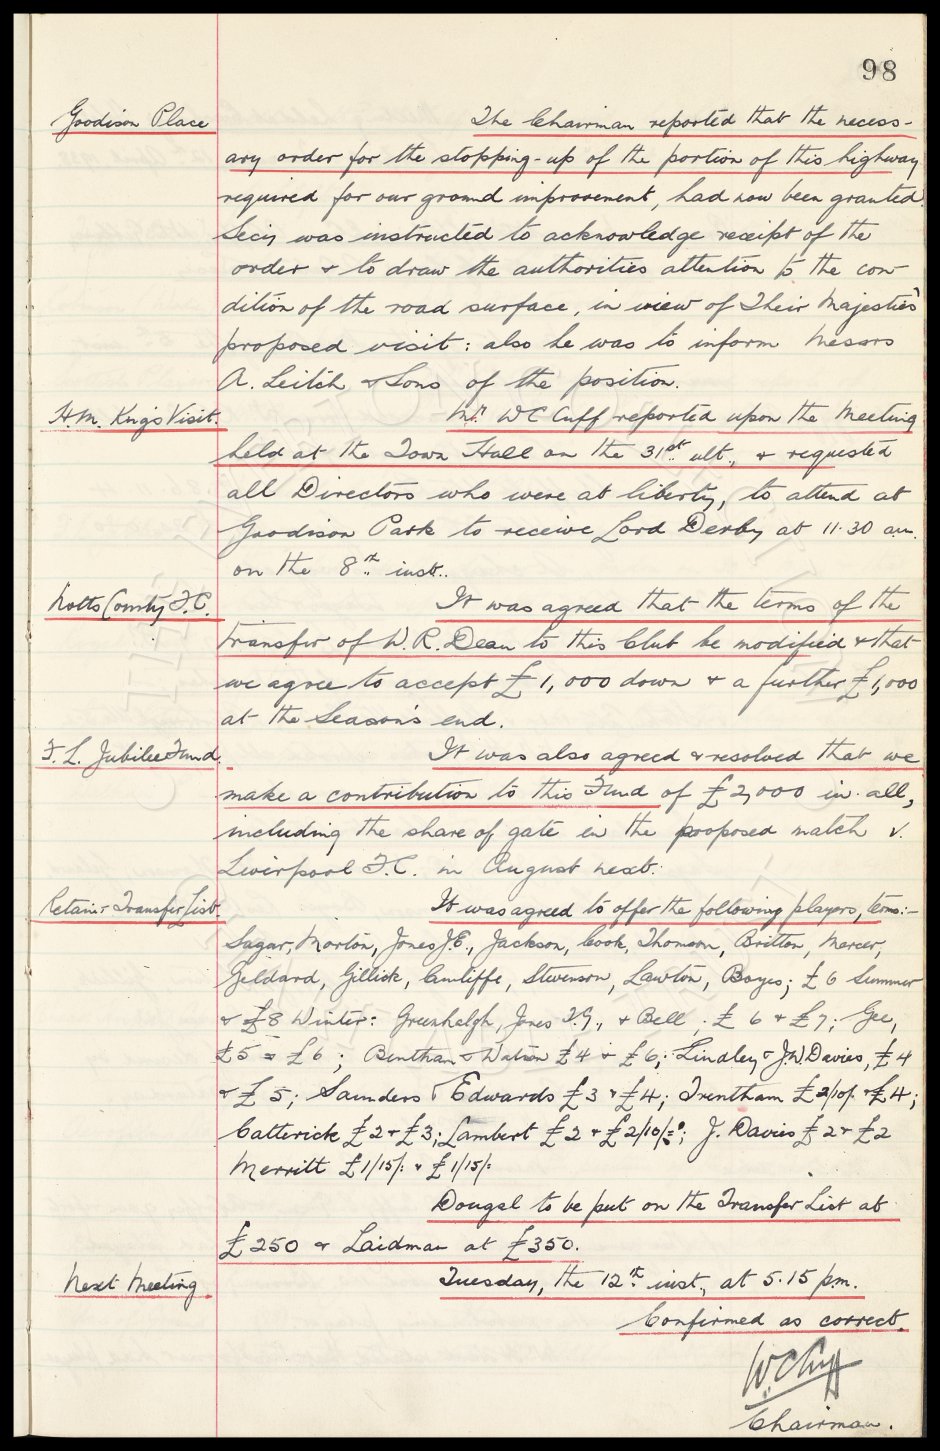 98
Goodison Place The Chairman reported that the necess-
ary order for the stopping-up of the portion of this highway
required for our ground improvement, had now been granted.
Secy was instructed to acknowledge receipt of the
order & to draw the authorities attention to the con-
dition of the road surface, in view of Their Majesties'
proposed visit: also he was to inform Messrs
A. Leitch & Sons of the position.
H.M. King's Visit. Mr. W C Cuff reported upon the Meeting
held at the Town Hall on the 31st ult., & requested
all Directors who were at liberty, to attend at
Goodison Park to receive Lord Derby at 11.30 am.
on the 8th inst..
Notts County F.C. It was agreed that the terms of the
transfer of W. R. Dean to this Club be modified & that
we agree to accept £1,000 down & a further £1,000
at the Season's end.
F. L. Jubilee Fund. It was also agreed & resolved that we
make a contribution to this Fund of £2,000 in all,
including the share of gate in the proposed match v.
Liverpool F.C. in August next.
Retain & Transfer List. It was agreed to offer the following players, terms:-
Sagar, Morton, Jones J.E., Jackson, Cook, Thomson, Britton, Mercer,
Geldard, Gillick, Cunliffe, Stevenson, Lawton, Boyes; £6 Summer
& £8 Winter: Greenhalgh, Jones T.G., & Bell; £6 & £7; Gee,
£5 & £6; Bentham & Watson £4 & £6; Lindley & J.W. Davies, £4
& £5; Saunders & Edwards £3 & £4; Trentham £2/10/- & £4;
Catterick £2 & £3; Lambert £2 & £2/10/-; J. Davies £2 & £2
Merritt £1/15/- & £1/15/-
Dougal to be put on the Transfer List at
£250 & Laidman at £350.
Next Meeting Tuesday, the 12th inst., at 5.15 p.m.
Confirmed as correct.
W.C. Cuff
Chairman.